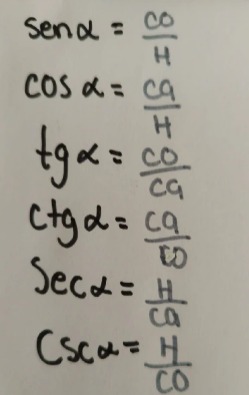 sen α = CO/H
cos α = Ca/H
tg α = CO/Ca
Ctg α = Ca/CO
Sec α = H/Ca
Csc α = H/CO